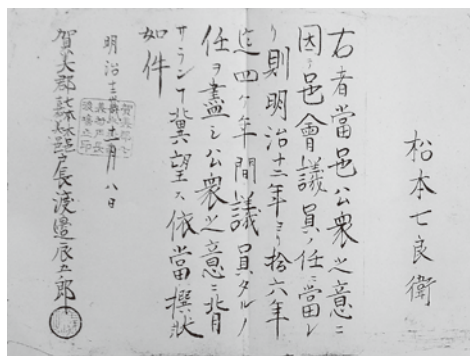 松本七良衛
右者當邑公衆之意ニ
因テ邑會議員ノ任ニ當レ
リ則明治十二年ヨリ拾六年
迄四ケ年間議員タルノ
任ヲ盡シ公衆之意ニ背
サランヿヲ冀望ス依當撰狀
如件
明治十二年十一月八日
賀美郡 戸長渡邉辰五郎